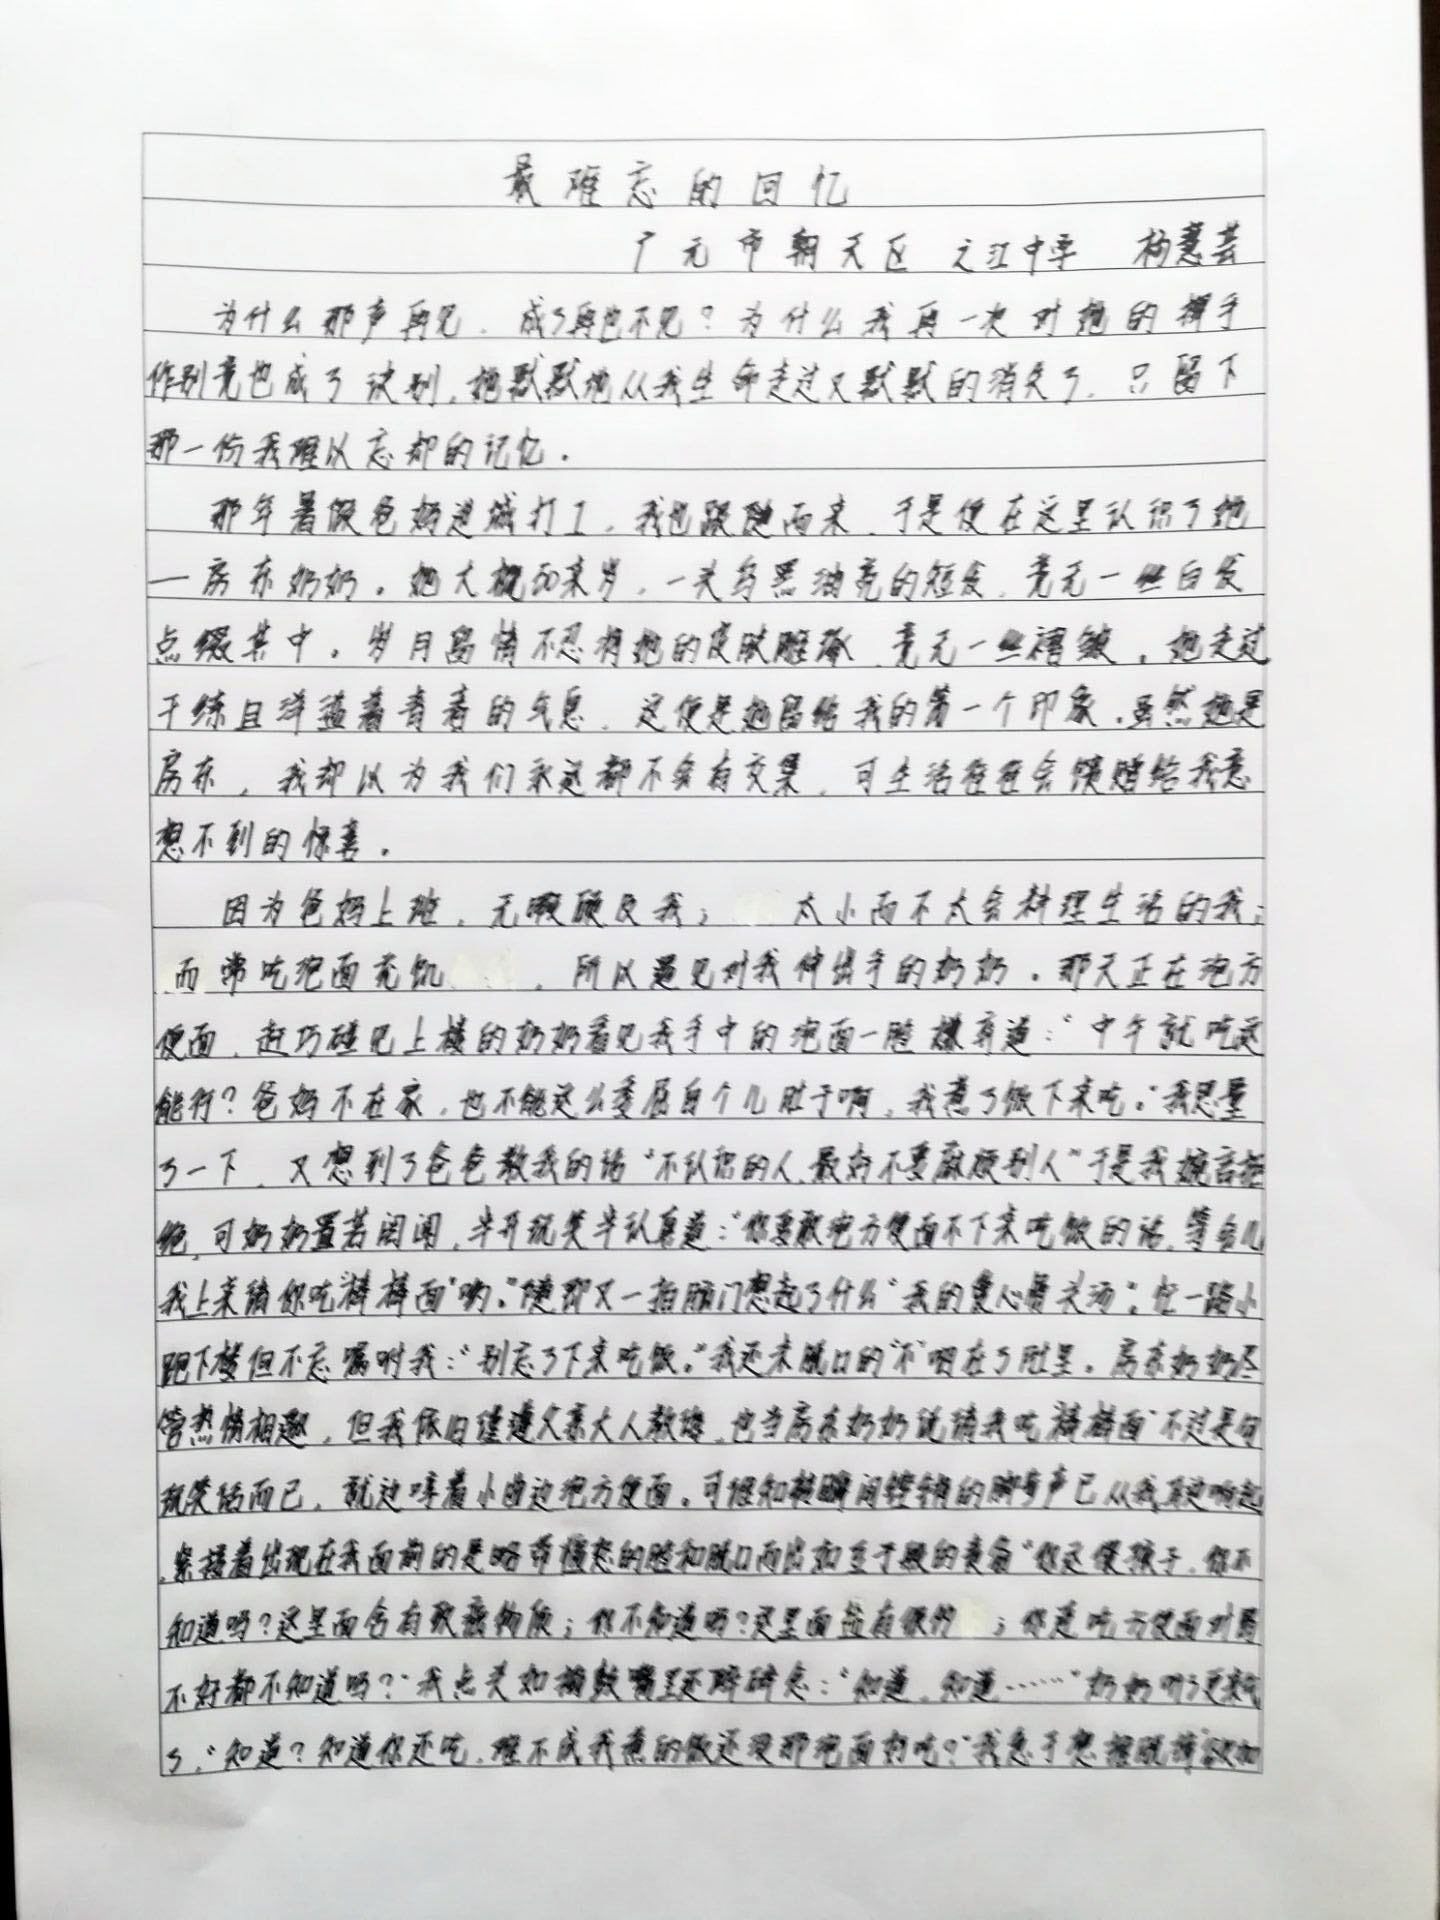 最难忘的回忆
广元市朝天区 之江中学 杨慧芸
为什么那声再见，成了再也不见？为什么我再一次对她的挥手
作别竟也成了诀别，她默默地从我生命走过又默默的消失了，只留下
那一份我难以忘却的记忆。
那年暑假爸妈进城打工，我也跟随而来，于是便在这里认识了她
—房东奶奶。她大概50来岁，一头乌黑油亮的短发，竟无一丝白发
点缀其中。岁月留情不忍将她的皮肤雕琢，竟无一丝褶皱，她走过
干练且洋溢着青春的气息，这便是她留给我的第一个印象。虽然她是
房东，我却以为我们永远都不会有交集，可生活往往会馈赠给我意
想不到的惊喜。
因为爸妈上班，无暇顾及我；太小而不太会料理生活的我；
而常吃泡面充饥，所以遇见对我伸出手的奶奶。那天正在泡方
便面，赶巧碰见上楼的奶奶看见我手中的泡面一脸嫌弃道：“中午就吃这
能行？爸妈不在家，也不能这么委屈自个儿肚子啊，我煮了饭下来吃。”我思量
了一下，又想到了爸爸教我的话“不认识的人，最好不要麻烦别人”于是我婉言拒
绝，可奶奶置若罔闻，半开玩笑半认真道：“你要敢泡方便面不下来吃饭的话，等会儿
我上来请你吃‘棒棒面’哟。”随即又一拍脑门想起了什么“我的爱心骨头汤”。忙一路小
跑下楼但不忘嘱咐我：“别忘了下来吃饭。”我还未脱口的“不”咽在了肚里。房东奶奶尽
管热情相邀，但我依旧谨遵父亲大人教诲，也当房东奶奶说请我吃“棒棒面”不过是句
玩笑话而已，就边哼着小曲边泡方便面。可谁知转瞬间铿锵的脚步声已从我耳边响起
，紧接着出现在我面前的是略带愠怒的脸和脱口而出如豆子般的责备“你这傻孩子，你不
知道吗？这里面含有致癌物质；你不知道吗？这里面盐有很多；你是吃方便面对胃
不好都不知道吗？”我点头如捣鼓嘴里还碎碎念：“知道，知道……”奶奶听了更来气
了，“知道？知道你还吃，难不成我煮的饭还没那泡面好吃？”我急于想摆脱